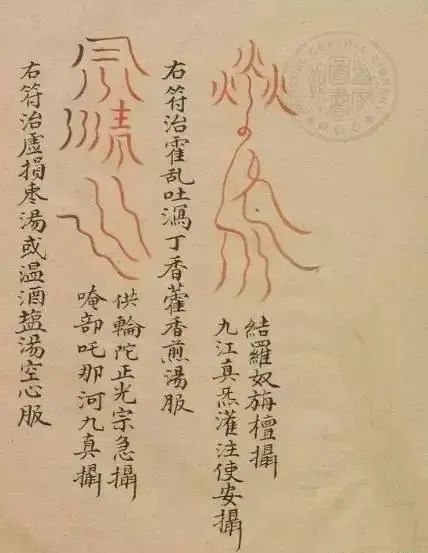 結羅奴旃檀攝
九江真炁灌注使安攝
右符治霍乱吐瀉丁香藿香煎湯服
供輪陀正光宗急攝
唵部吒那河九真攝
右符治虛損枣湯或温酒塩湯空心服